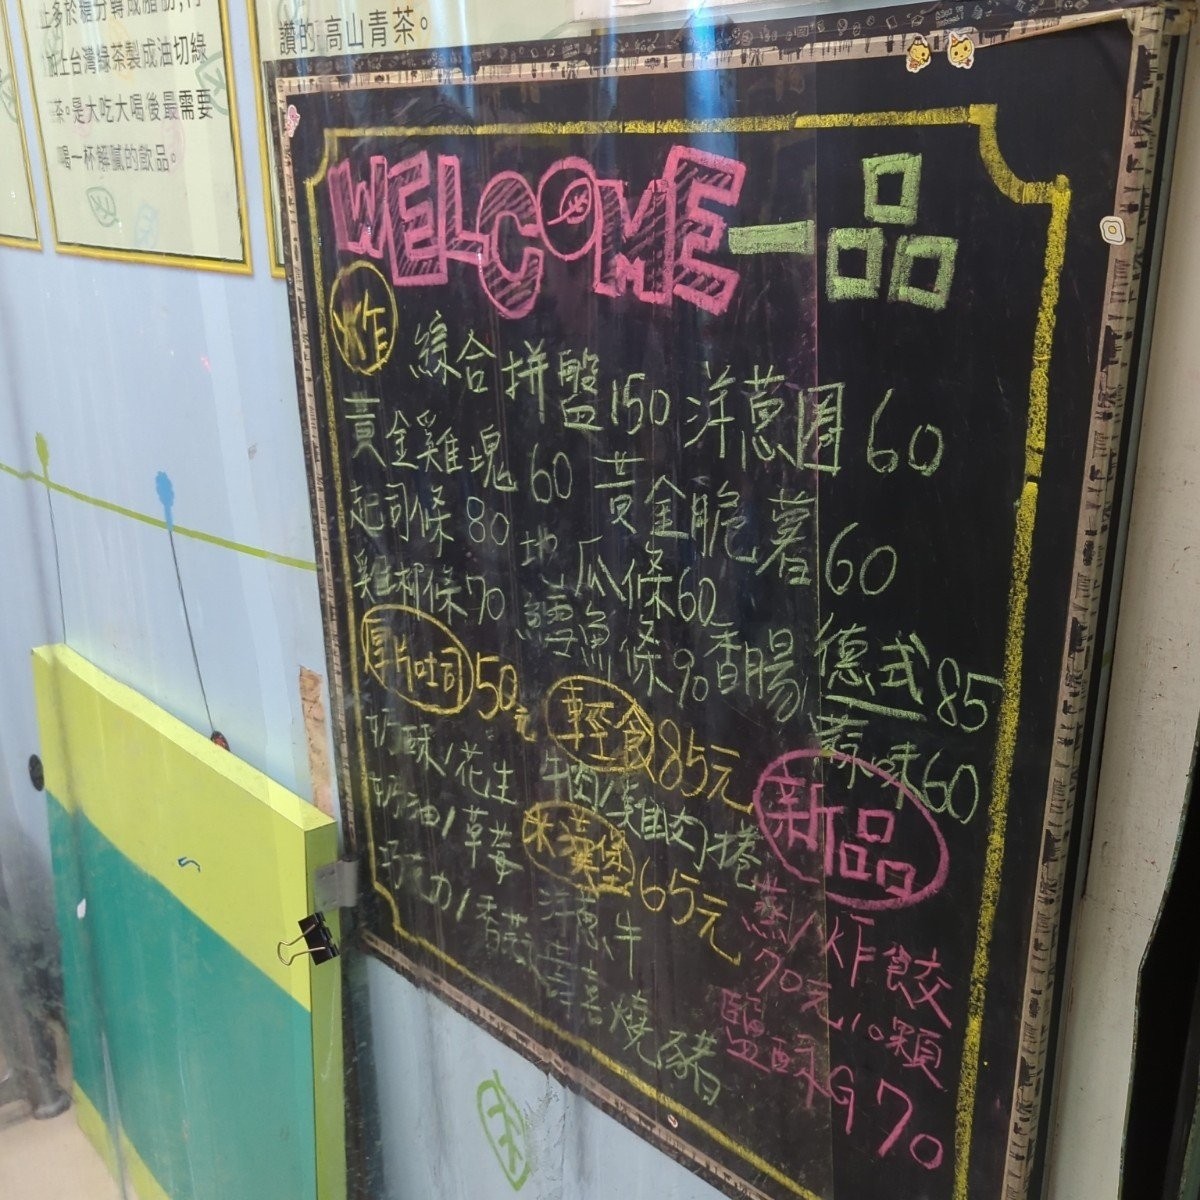 上多於糖分轉成脂肪,特
加上台灣綠茶製成油切綠
茶。是大吃大喝後最需要
喝一杯解膩的飲品。
讚的高山青茶。
WELCOME一品
炸
綜合拼盤150 洋蔥圈60
黃金雞塊60 黃金脆薯60
起司條80 地瓜條60
雞柳條70 鱈魚條90 香腸 德式85
蒜味60
厚片吐司50元
奶酥/花生
奶油/草莓
巧克力/香蒜
輕食85元
牛肉/雞肉捲
米漢堡65元
洋蔥牛
壽喜燒豬
新品
蒸/炸餃
70元10顆
鹽酥G70